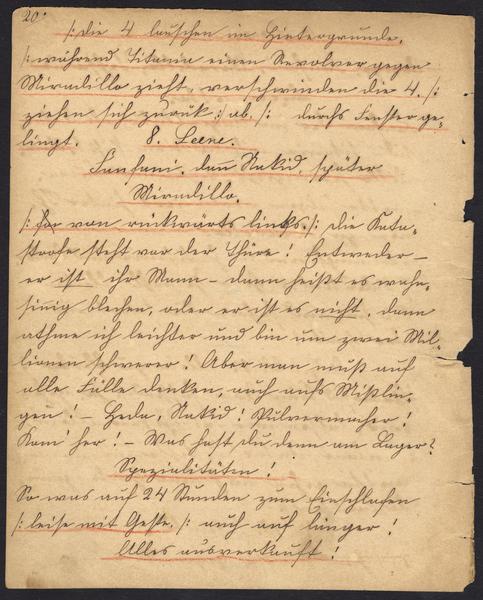 20.
/: die 4 lauschen im Hintergrunde,
/: während Titania einen Revolver gegen
Miradillo zieht, verschwinden die 4. /:
ziehen sich zurük :/ ab. /: durchs Fenster ge-
lingt. 8. Scene.
Fanfani, dann Nakid, später
Miradillo.
/: von rückwärts links. /: Die Kata-
strofe steht vor der Thüre! Entweder –
er ist ihr Mann – dann heißt es wahn-
sinnig blechen, oder er ist es nicht, dann
athme ich leichter und bin um zwei Mil-
lionen schwerer! Aber man muß auf
alle Fälle denken, auch aufs Mißlin-
gen! – Heda, Nakid! Pulvermacher!
Kom̄' her! – Was hast du denn am Lager?
Spezialitäten!
So was auf 24 Stunden zum Einschlafen
/: leise mit Geste. /: auch auf länger!
Alles ausverkauft!